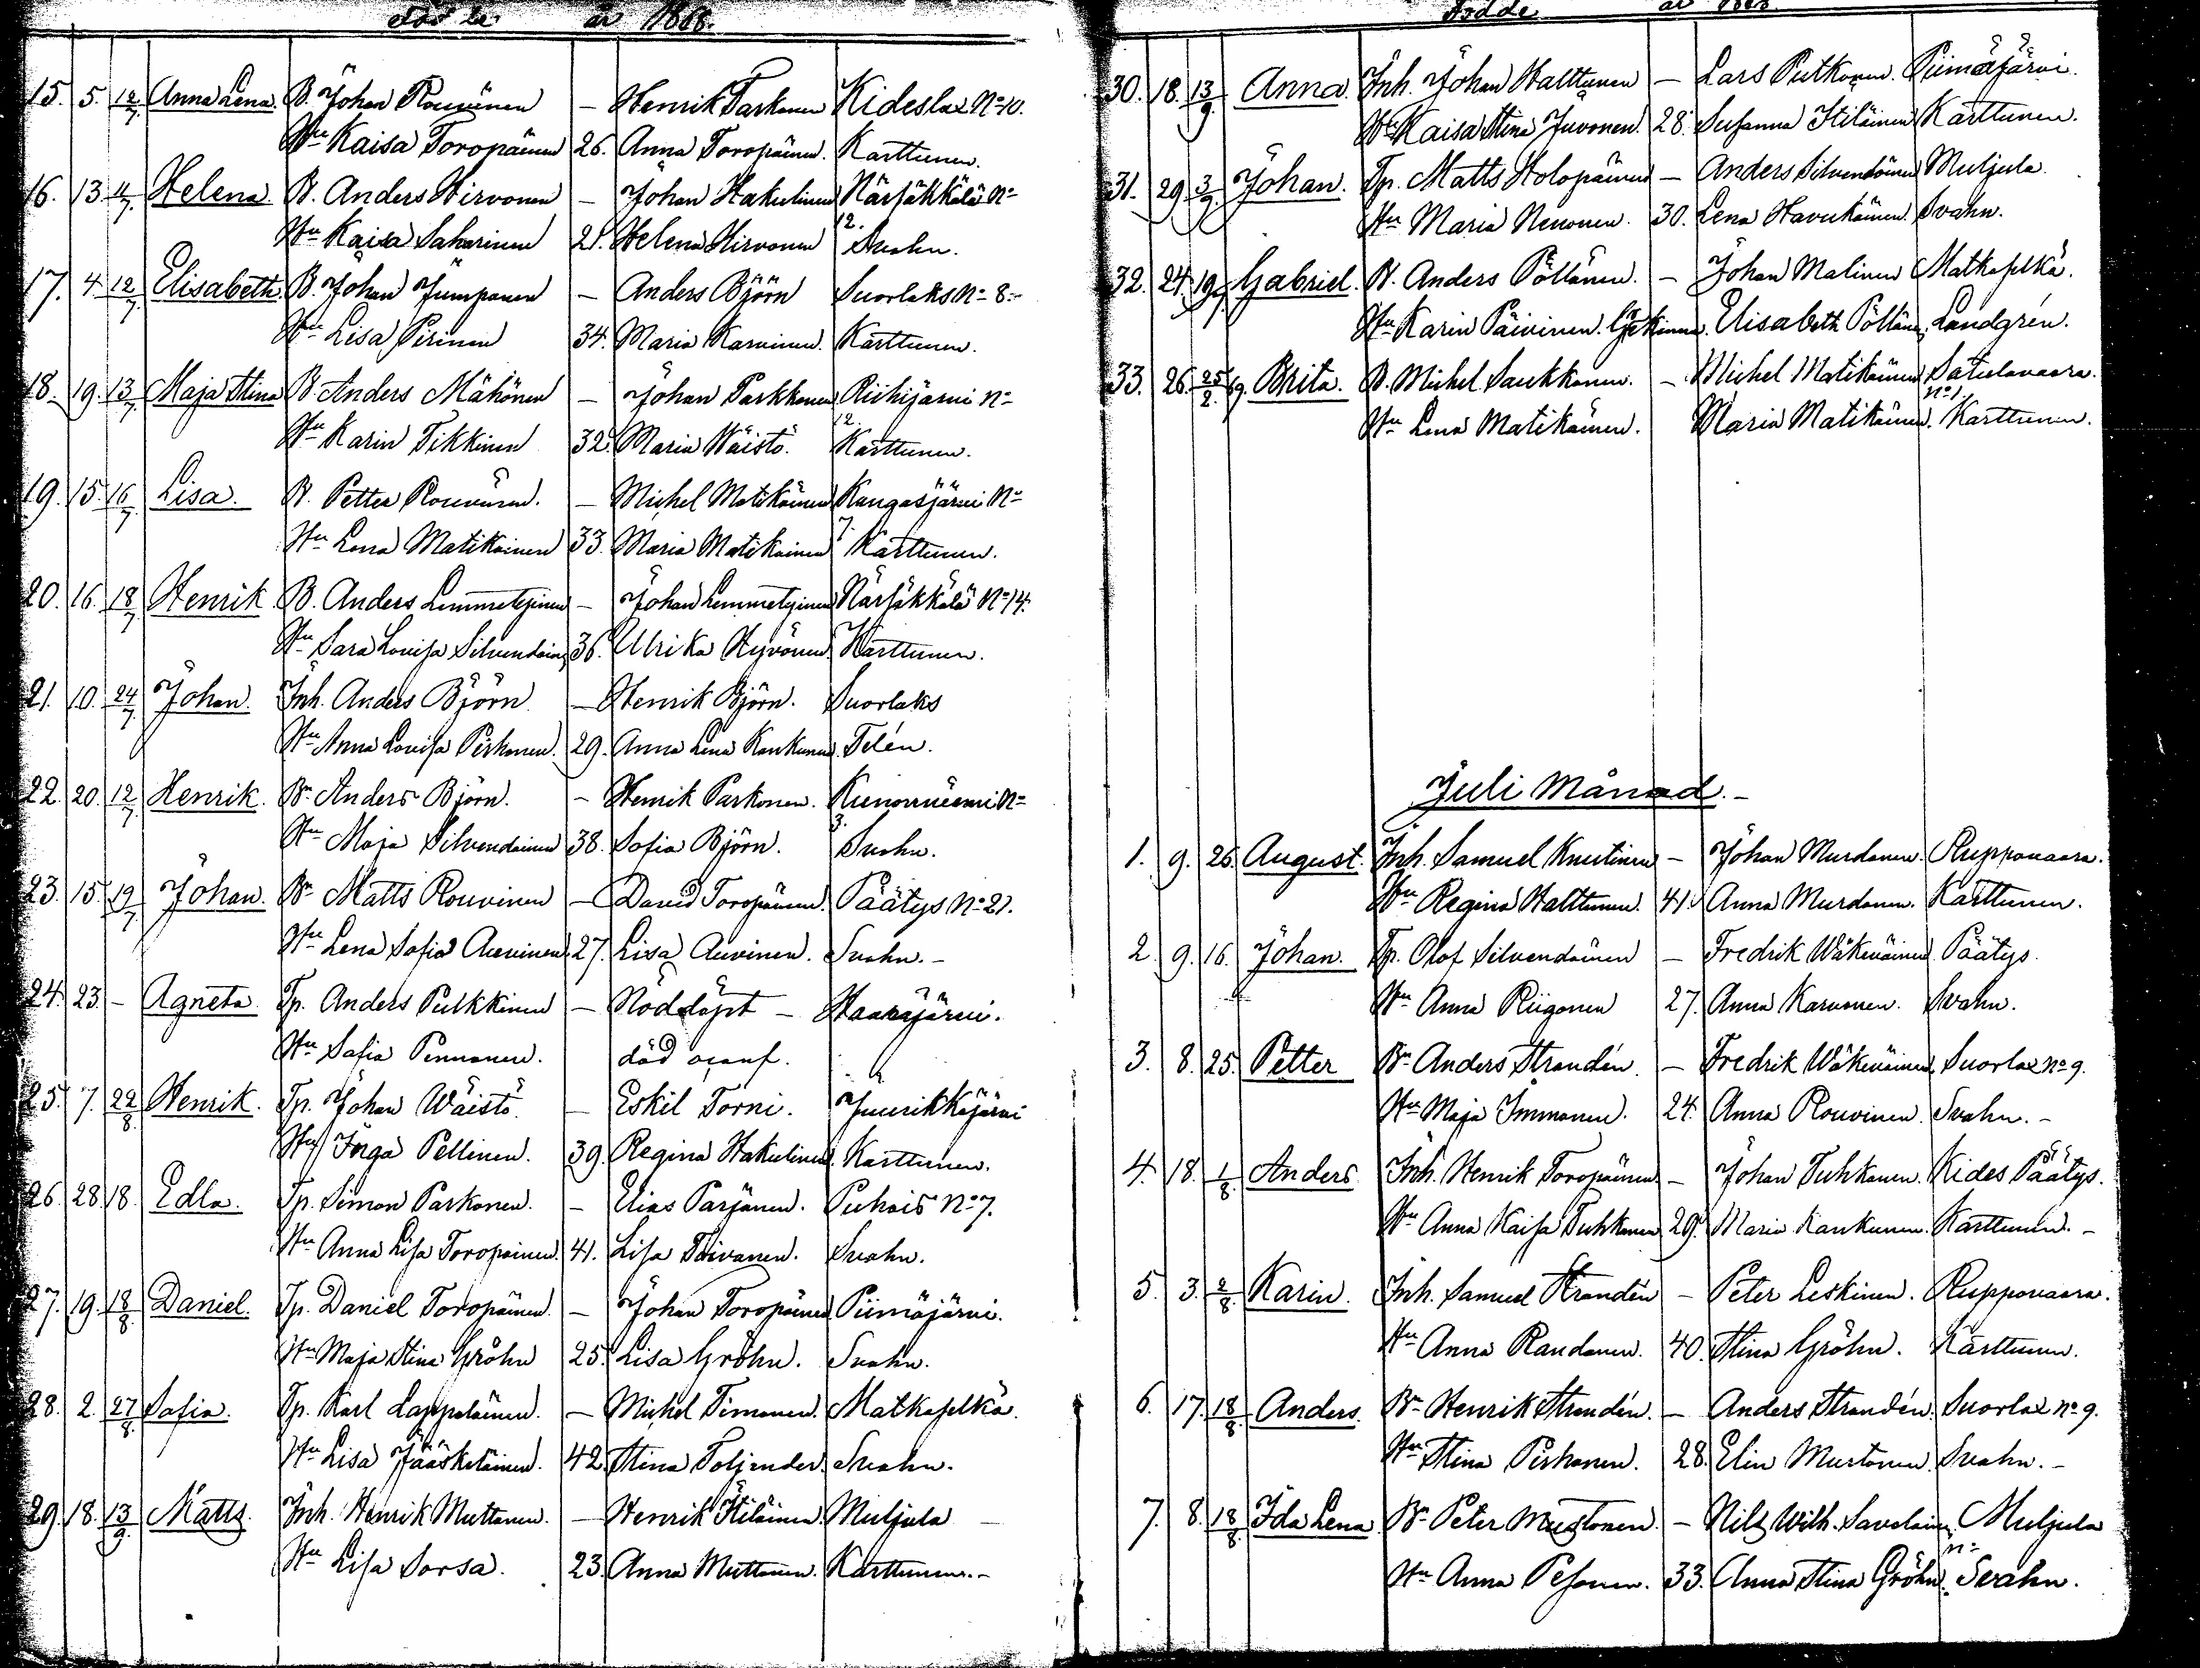 Födde år 1868.
15. 5. 12/7 Anna Lena. B. Johan Rouvinen — Henrik Parkonen Kideslax No 10.
Hu Kaisa Toropainen 26. Anna Toropainen. Karttunen.
16. 13. 4/7 Helena. B. Anders Hirvonen — Johan Hakulinen Närsäkkälä No
12.
Hu Kaisa Saharinen 21. Helena Hirvonen Svahn.
17. 4. 12/7 Elisabeth B. Johan Jumpanen — Anders Björn Suorlaks No 8.
Hu Lisa Pirinen 34. Maria Karvinen. Karttunen.
18. 19. 13/7 Maja Stina B. Anders Mähönen — Johan Parkkonen Riihijärvi No
12.
Hu Karin Tikkinen 32. Maria Wäistö. Karttunen.
19. 15. 16/7 Lisa. B. Petter Rouvinen. — Michel Matikäinen Kangasjärvi No
7.
Hu Lena Matikainen 33. Maria Matikainen Karttunen.
20. 16. 18/7 Henrik B. Anders Lemmetyinen — Johan Lemmetyinen Närsäkkälä No 14.
Hu Sara Lovisa Silvendoin 36. Ulrika Hyvönen Karttunen.
21. 10. 24/7 Johan. Inh. Anders Björn — Henrik Björn. Suorlaks
Hu Anna Lovisa Pirhonen. 29. Anna Lena Kankunen Telén.
22. 20. 12/7 Henrik. Bn Anders Björn. — Henrik Parkonen. No
3.
Hu Maja Silvendoinen 38. Sofia Björn. Svahn.
23. 15. 19/7 Johan. Bn Matts Rouvinen — David Toropainen. Päätys No 21.
Hu Lena Sofia Auvinen. 27. Lisa Auvinen. Svahn. —
24. 23. — Agneta. Tp. Anders Pulkkinen — Nöddöpt — Haarajärvi.
Hu Sofia Pennanen. död
25. 7. 22/8 Henrik. Tp. Johan Wäistö. — Eskil Torni. Juurikkajärvi
Hu Inga Pellinen. 39. Regina Hakulinen Karttunen.
26. 28. 18. Edla. Tp. Simon Parkonen. — Elias Parjanen. Puhois No 7.
Hu Anna Lisa Toropainen. 41. Lisa Toivanen. Svahn.
27. 19. 18/8 Daniel. Tp. Daniel Toropainen. — Johan Toropainen Piimäjärvi.
Hu Maja Stina Gröhn 25. Lisa Gröhn. Svahn.
28. 2. 27/8 Sofia. Tp. Karl Lappalainen. — Michel Timonen. Matkaselkä.
Hu Lisa Jääskeläinen. 42. Stina Toljander. Svahn.
29. 18. 13/9 Matts. Inh. Henrik Muttonen. — Henrik Itiläinen Muljula —
Hu Lisa Sorsa. 23. Anna Muttonen. Karttunen. —
Födde år 1868
30. 18. 13/9 Anna. Inh. Johan Halttunen — Lars Putkonen. Piimäjärvi.
Hu Kaisa Stina Juvonen. 28. Susanna Itiläinen Karttunen.
31. 29. 3/9 Johan. Tp. Matts Holopainen — Anders Silvendoinen Muljula.
Hu Maria Nenonen. 30. Lena Havukainen. Svahn.
32. 24. 19/9 Gabriel. B. Anders Pöllänen. — Johan Malinen Matkaselkä.
Hu Karin Päivinen. Elisabeth Pöllänen Landgrén.
33. 26. 25/2 69. Brita. B. Michel Saukkonen. — Michel Matikäinen Satulavaara.
No 1.
Hu Lena Matikäinen. Maria Matikäinen. Karttunen.
Juli Månad. —
1. 9. 26. August. Inh. Samuel Knutinen — Johan Murdonen. Ruppovaara.
Hu Regina Halttunen. 41. Anna Murdonen. Karttunen.
2. 9. 16. Johan. Tp. Olof Silvendoinen — Fredrik Wäkeväinen Päätys.
Hu Anna Riigonen 27. Anna Karvonen. Svahn.
3. 8. 25. Petter Bn Anders Strandén. — Fredrik Wäkeväinen Suorlax No 9.
Hu Maja Immonen. 24. Anna Rouvinen. Svahn. —
4. 18. 1/8 Anders. Inh. Henrik Toropainen — Johan Tuhkanen. Kides Päätys.
Hu Anna Kaisa Tuhkanen 29. Maria Kankunen. Karttunen. —
5. 3. 2/8 Karin. Inh. Samuel Strandén — Peter Leskinen. Ruppovaara.
Hu Anna Randonen. 40. Stina Gröhn. Karttunen.
6. 17. 18/8 Anders. Bn Henrik Strandén. — Anders Strandén. Suorlax No 9.
Hu Stina Pirhonen. 28. Elin Murtonen. Svahn. —
7. 8. 18/8 Ida Lena Bn Peter Mustonen. — Nils Wilh. Savolain Muljula
No
Hu Anna Pesonen. 33. Anna Stina Gröhn. Svahn.